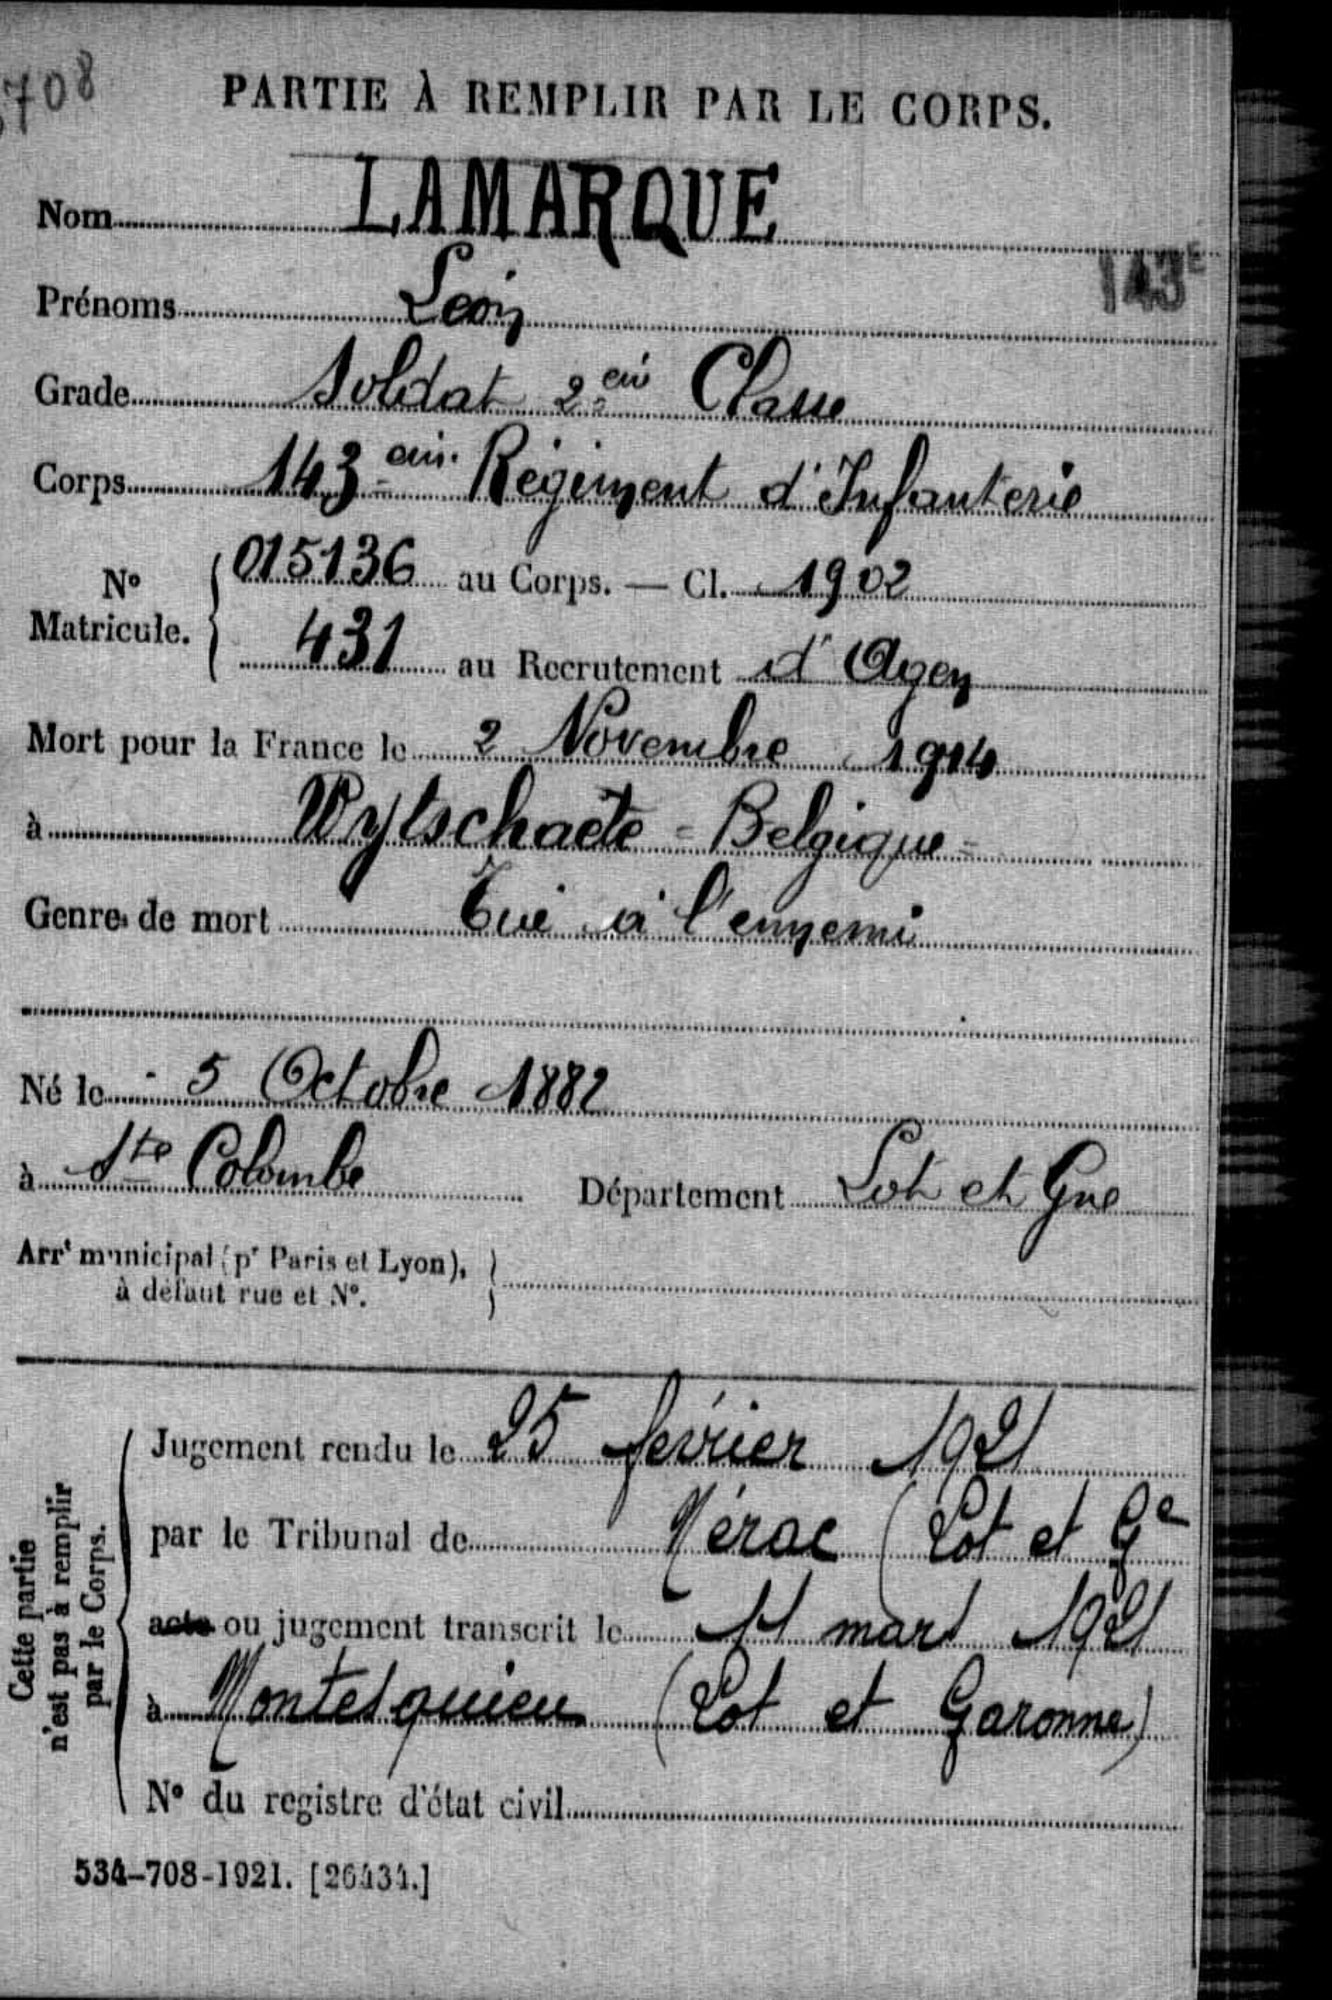 708
PARTIE À REMPLIR PAR LE CORPS.
Nom LAMARQUE
143E
Prénoms Leon
Grade Soldat 2eme Classe
Corps 143eme Régiment d'Infanterie
No Matricule. { 015136 au Corps. — Cl. 1902
431 au Recrutement d'Agen
Mort pour la France le 2 Novembre 1914
à Wytschaete - Belgique -
Genre de mort Tué à l'ennemi
Né le 5 Octobre 1882
à Ste Colombe Département Lot et Gne
Arrt municipal (pr Paris et Lyon), à défaut rue et No. }
Cette partie n'est pas à remplir par le Corps.
Jugement rendu le 25 février 1921
par le Tribunal de Nérac (Lot et Ge
acte ou jugement transcrit le 11 mars 1921
à Montesquieu (Lot et Garonne)
No du registre d'état civil
534-708-1921. [26434.]